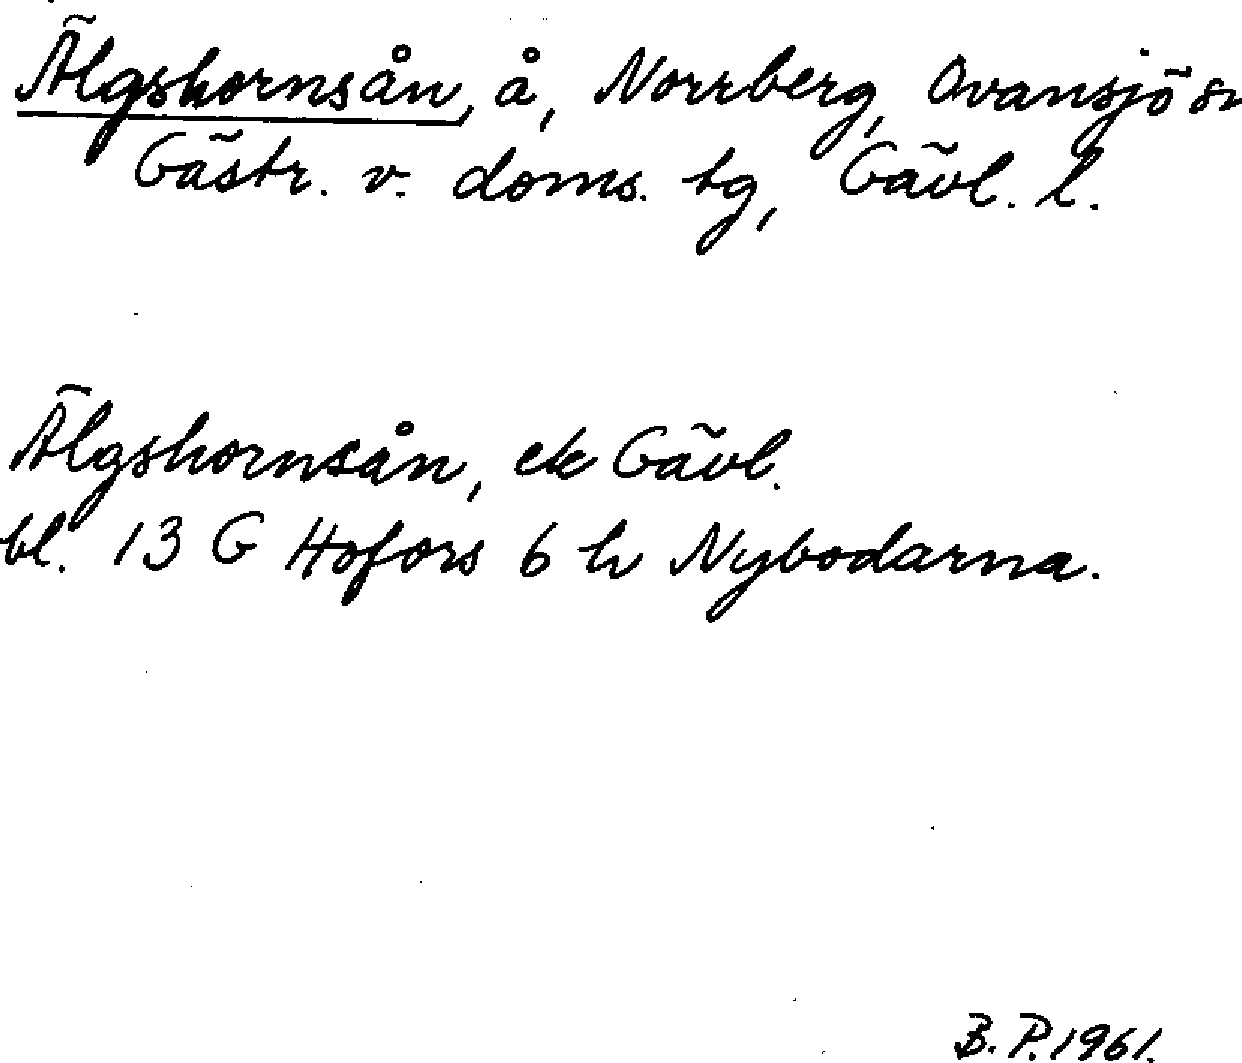 Älgshornsån, å, Norrberg, Ovansjö sn
Gästr. v. doms. tg, Gävl. l.
Älgshornsån, ek Gävl.
bl. 13 G Hofors 6 h Nybodarna.
B. P. 1961.